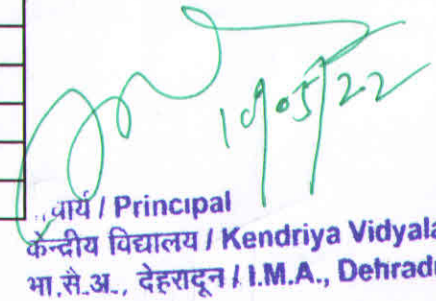 10/05/22
..चार्य / Principal
केन्द्रीय विद्यालय / Kendriya Vidyala
भा.सै.अ., देहरादून / I.M.A., Dehradu